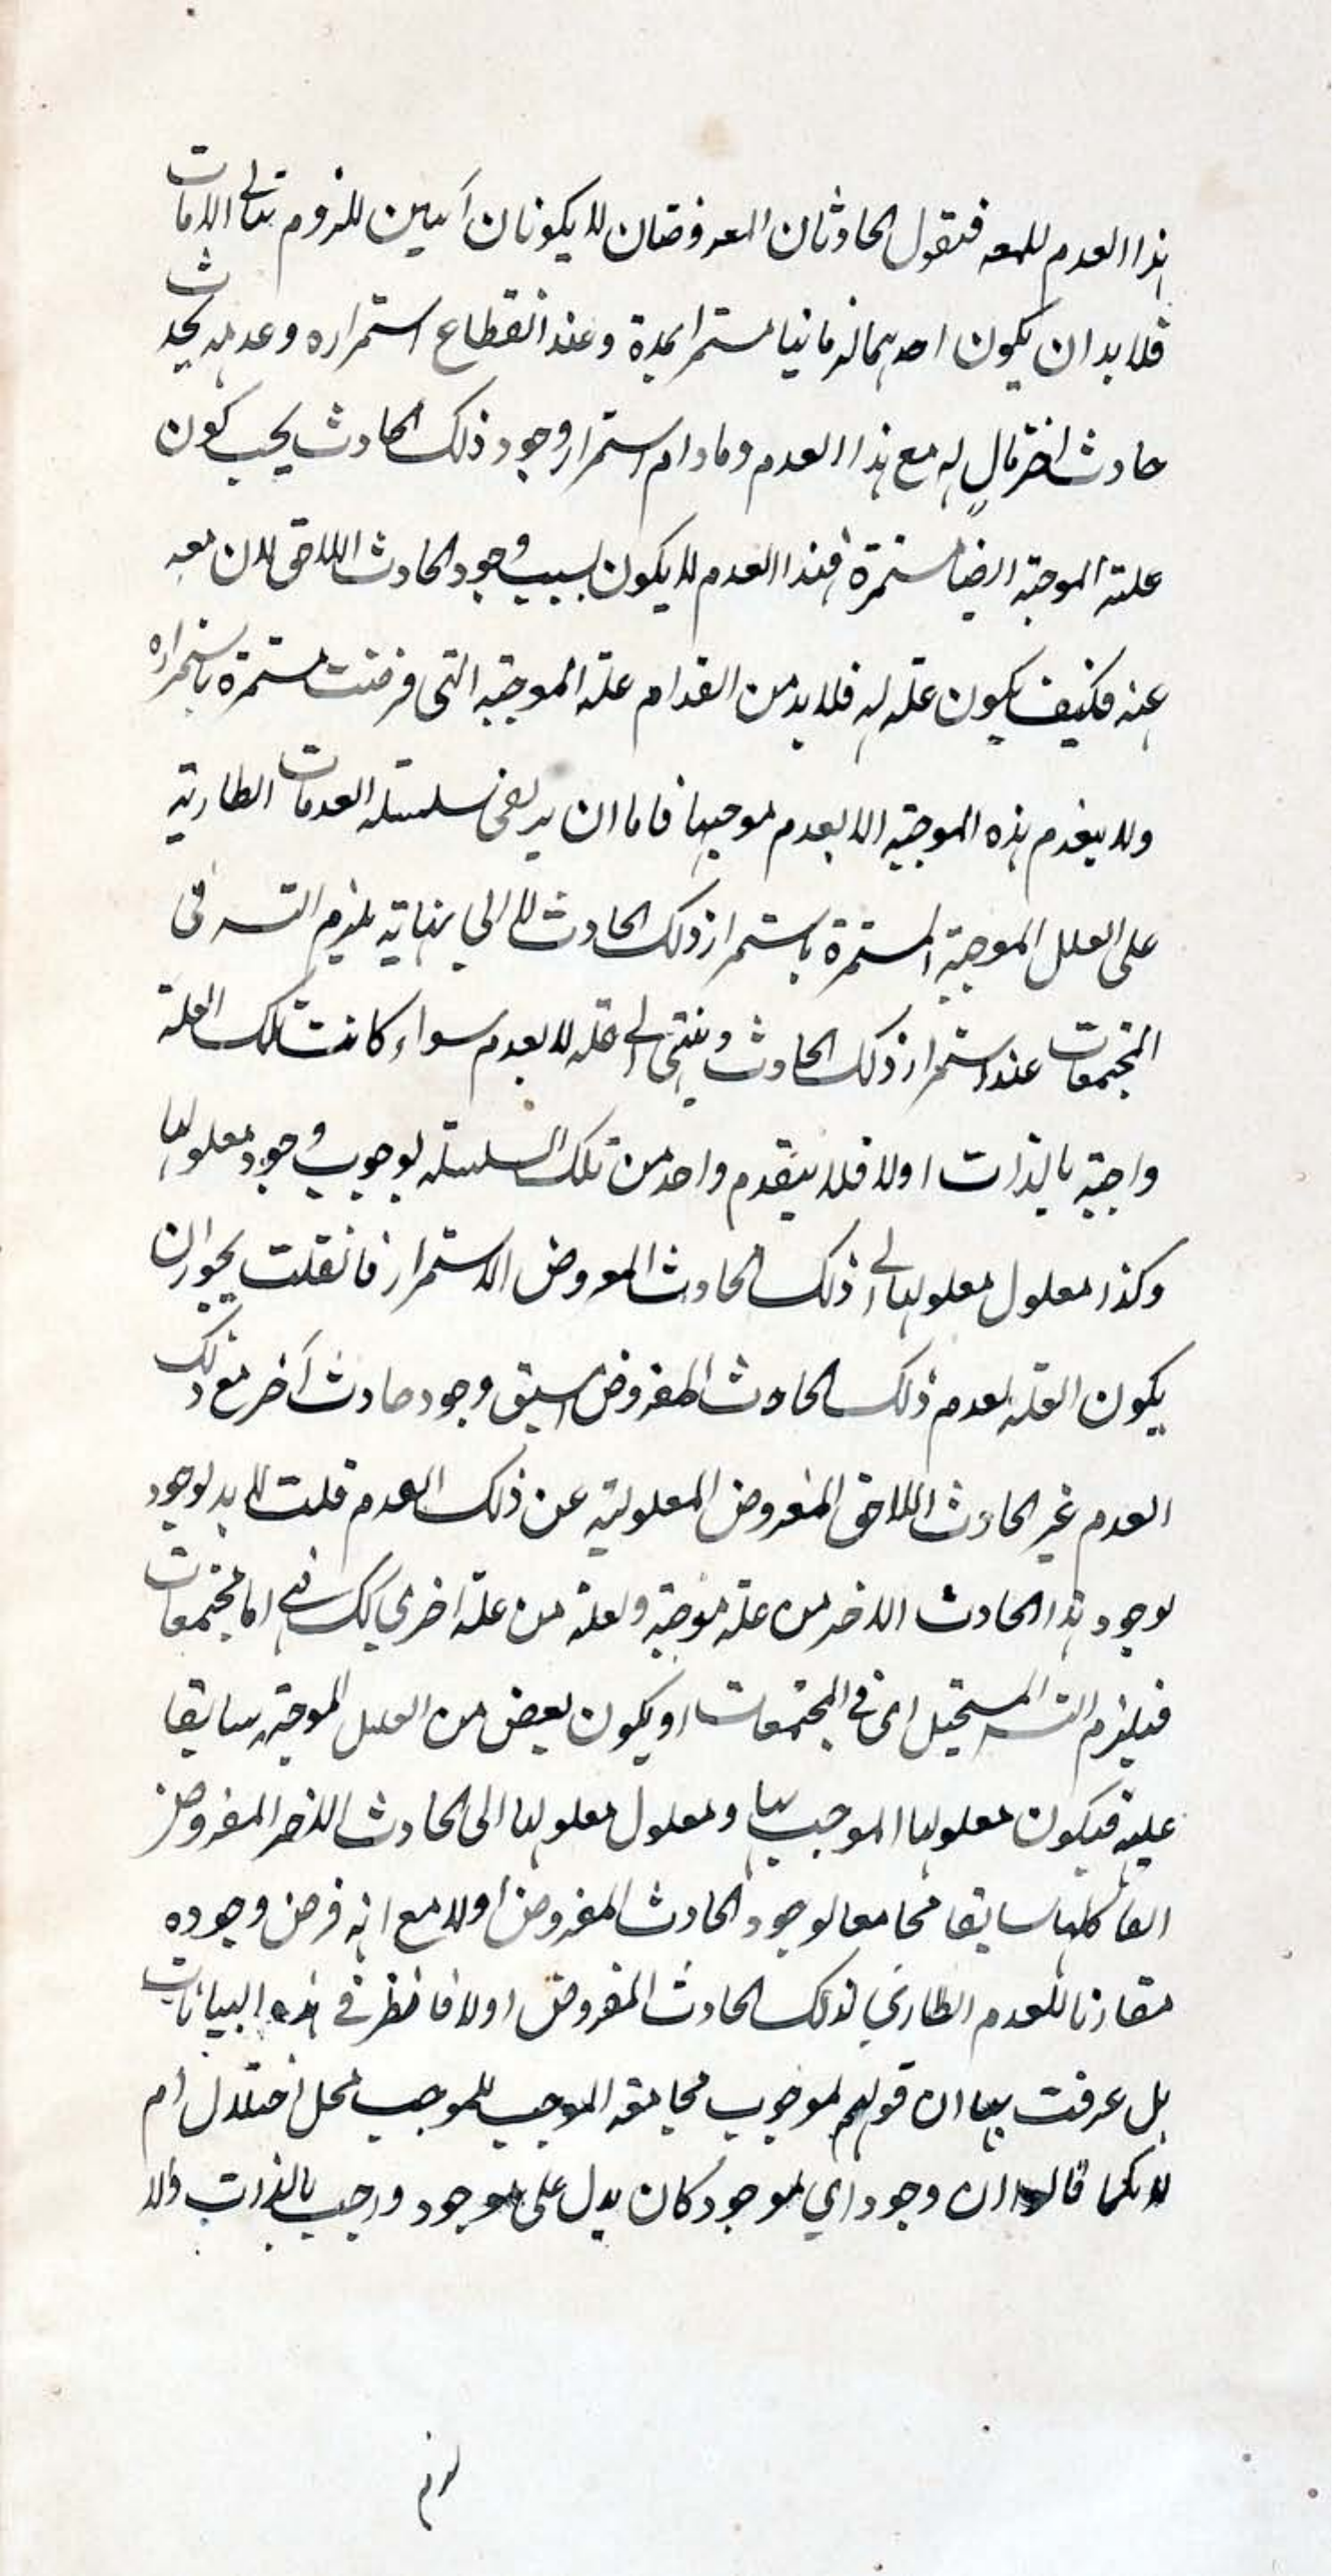 هذا العدم للمعه فنقول الحادثان المعروضتان لا يكونان آنيين للزوم تتالي الآنات
فلا بد ان يكون احدهما زمانيا مستمرا بمدة وعند انقطاع استمراره وعدمه يحدث
حادث اخر تال له مع هذا العدم وما دام استمرار وجود ذلك الحادث يجب كون
علته الموجبة ايضا مستمرة فهذا العدم لا يكون بسبب وجود الحادث اللاحق لان معه
عنه فكيف يكون علة له فلا بد من انعدام علته الموجبة التي فرضت مستمرة باستمراره
ولا ينعدم هذه الموجبة الا بعدم موجبها فاما ان يرتقي سلسلة العدمات الطارية
على العلل الموجبة المستمرة باستمرار ذلك الحادث لا الي نهاية يلزم التسـ في
المجتمعات عند استمرار ذلك الحادث وينتهي الى علة لا يعدم سواء كانت تلك العلة
واجبة بالذات اولا فلا ينعدم واحد من تلك السلسلة لوجوب وجود معلولها
وكذا معلول معلولها الى ذلك الحادث المعروض الاستمرار فان قلت يجوز ان
يكون العلة لعدم ذلك الحادث المفروض اسبق وجود حادث آخر مع ذلك
العدم غير الحادث اللاحق المفروض المعلولية عن ذلك العدم قلت لا بد لوجود
لوجود هذا الحادث الاخر من علة موجبة ولعلة من علة اخرى كك فهي اما مجتمعات
فيلزم التسـ المستحيل اى في المجتمعات او يكون بعض من العلل الموجبة سابقا
عليه فيكون معلولها الموجب بها ومعلول معلولها الى الحادث الاخر المفروض
انفا كلها سابقا مجامعا لوجود الحادث المفروض اولا مع انه فرض وجوده
مقارنا للعدم الطاري لذلك الحادث المفروض اولا فانظر في هذه البيانات
بل عرفت بها ان قولهم لوجوب مجامعة الموجب للموجب محل اختلال ام
لا بكما قالوا ان وجود اي موجود كان يدل على موجود واجب بالذات والا
لزم